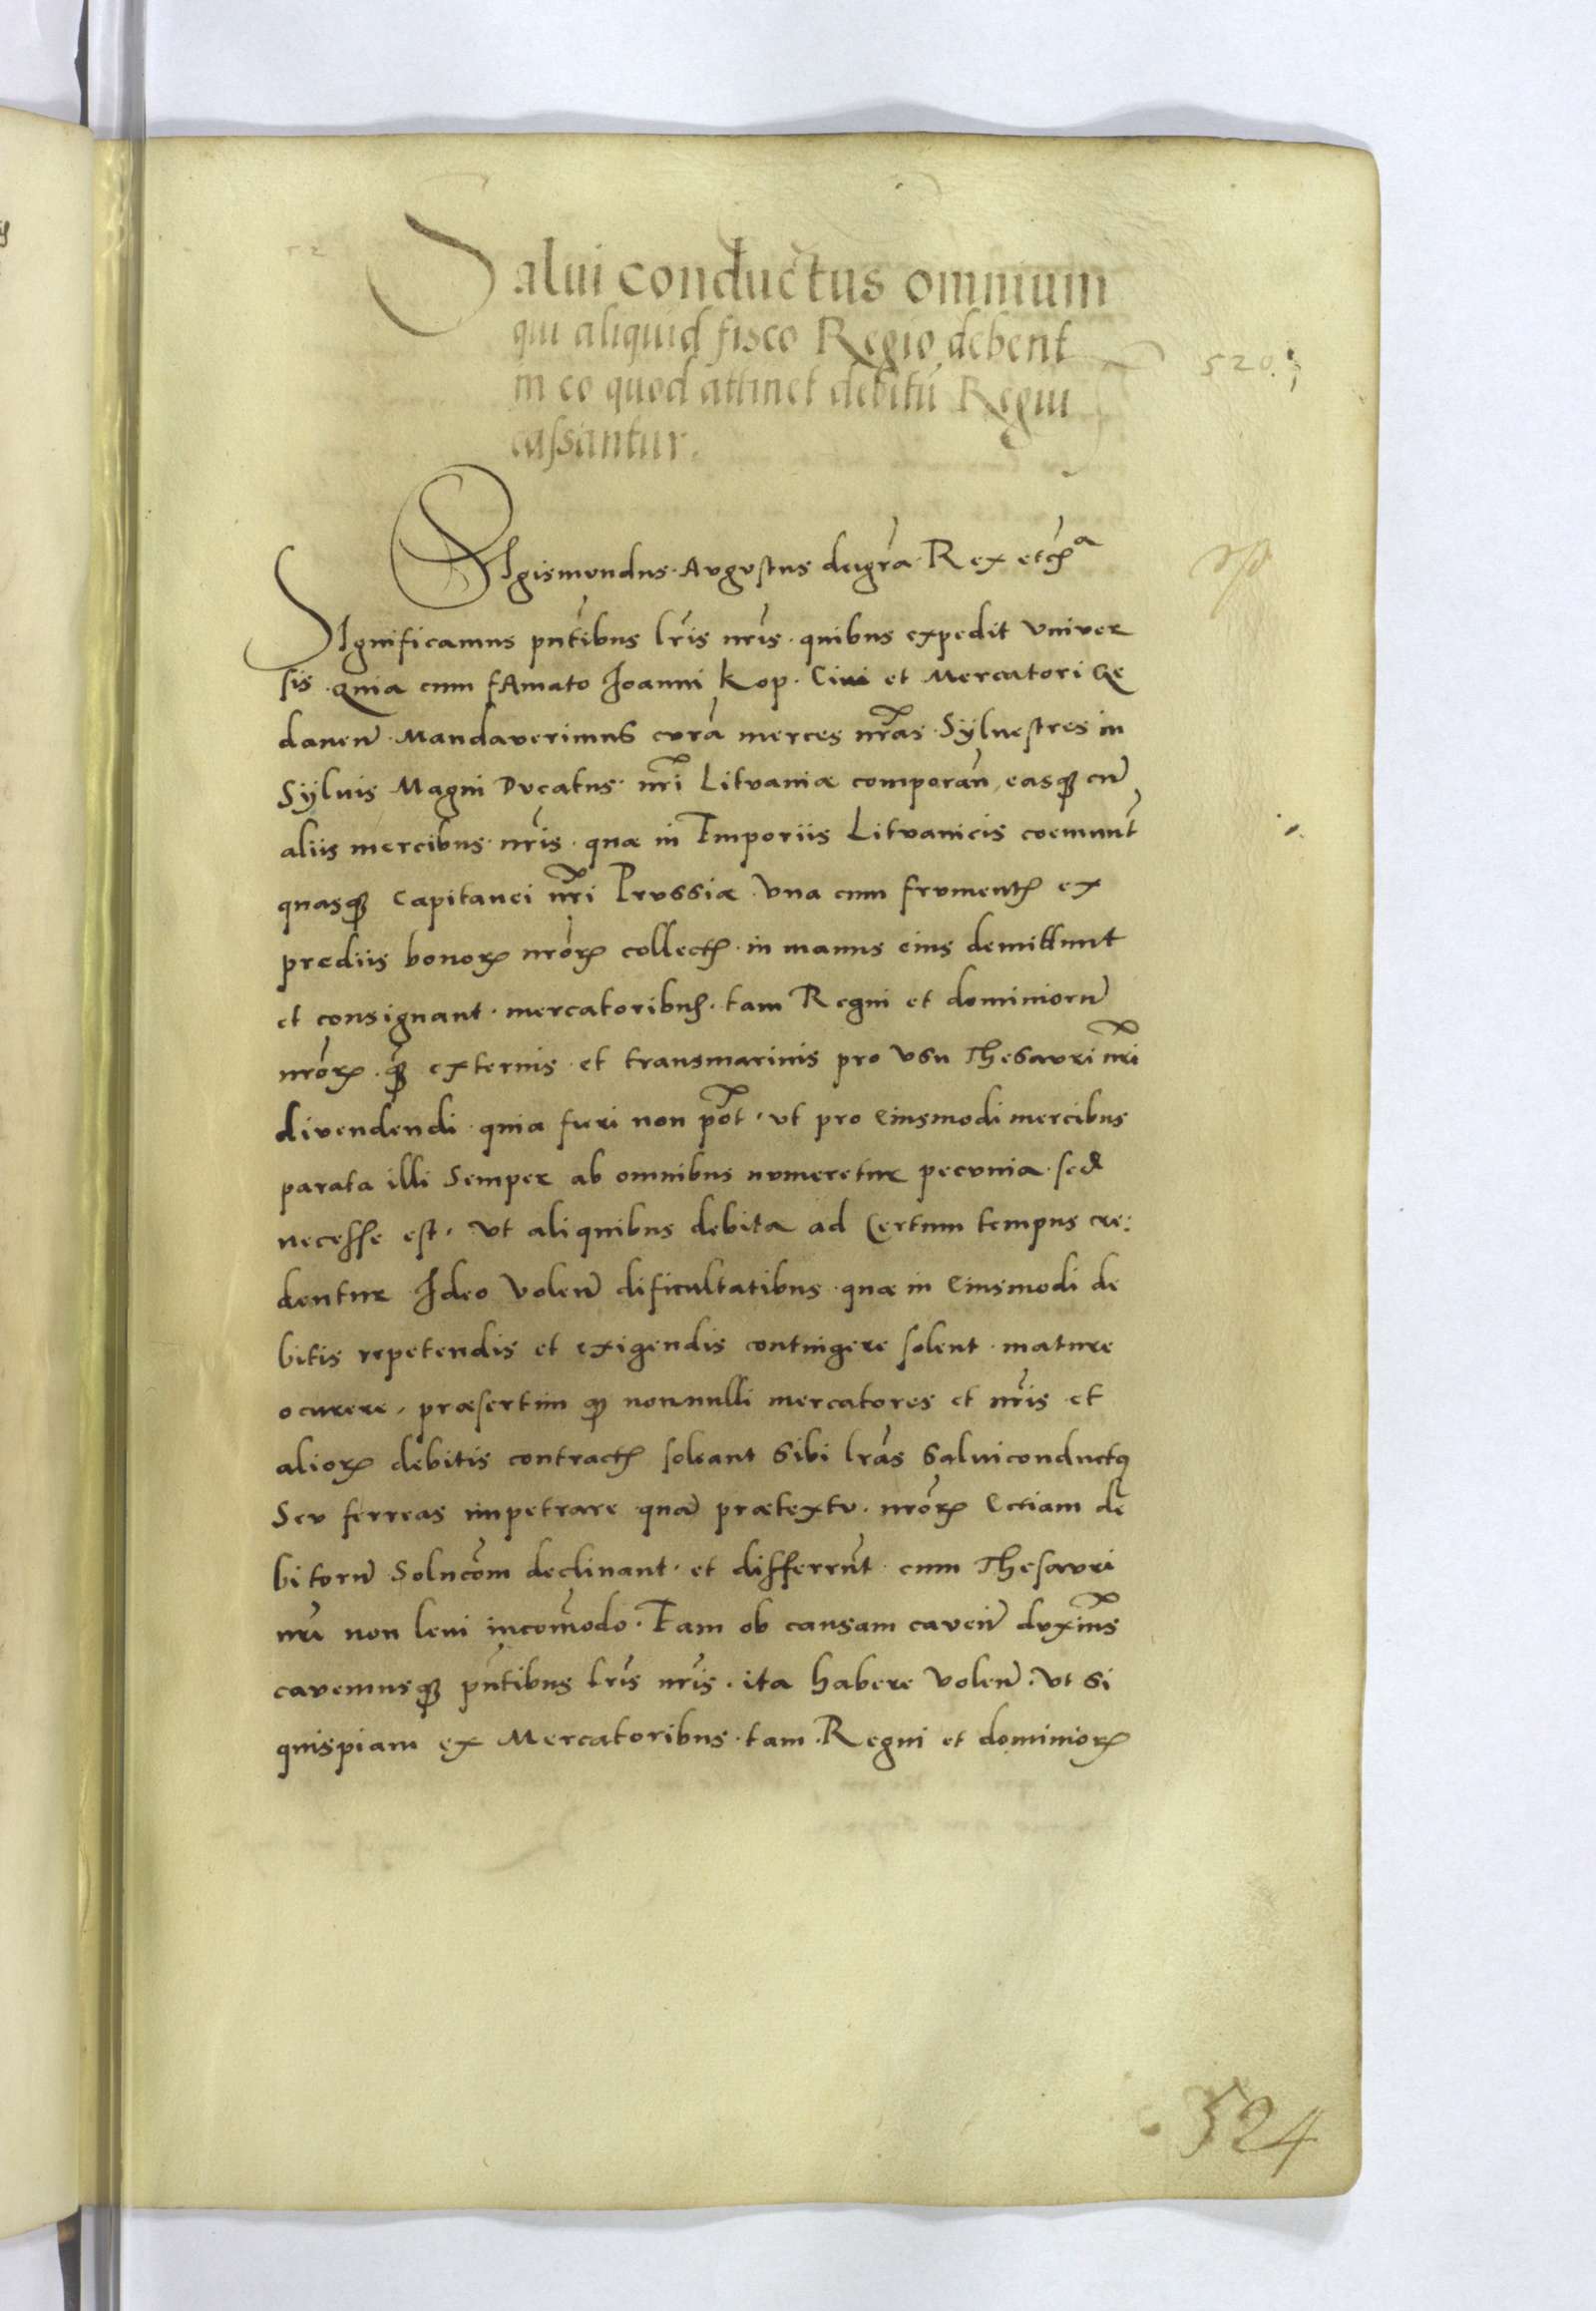 Salui conductus omnium
qui aliquid fisco Regio debent
in eo quod attinet debitũ Regiũ
cassantur.
520
SIgismundus Augustus dei grã Rex etc̃ᵃ
SIgnificamus pñtibus lr̃is nr̃is quibus expedit Vniuer
sis quia cum fAmato Ioanni Kop Ciui et Mercatori Ge
daneñ Mandauerimus curã merces nr̃as Syluestres in
Syluis Magni Ducatus nr̃i Lituaniæ comparañ easq₃ cũ
aliis mercibus nr̃is quæ in Emporiis Lituanicis coemunt̃
quasq₃ Capitanei nr̃i Prussiæ Vna cum frumentꝭ ex
prediis bonorꝝ nr̃orꝝ collectꝭ in manus eius demittunt
et consignant mercatoribꝰ tam Regni et dominiorũ
nr̃orꝝ q̃₃ externis et transmarinis pro Vsu Thesauri nr̃i
diuendendi quia fieri non põt vt pro Eiusmodi mercibus
parata illi Semper ab omnibus numeretur pecunia sed
necesse est Vt aliquibus debita ad Certum tempus cre:
dentur Ideo Voleñ dificultatibus quæ in Eiusmodi de
bitis repetendis et exigendis contingere solent mature
ocurere, præsertim q₃ nonnulli mercatores et nr̃is et
aliorꝝ debitis contractꝭ soleant Sibi lr̃as Saluiconductꝰ
Seu ferreas impetrare quarũ prætextu nr̃orꝝ Ectiam de
bitorũ Solucõm declinant et differrũt cum Thesauri
nr̃i non leui incom̃odo. Eam ob causam caueñ duxim̃s
cauemusq₃ pñtibus lr̃is nr̃is ita habere Voleñ Vt Si
quispiam ex Mercatoribus tam Regni et dominiorꝝ
524